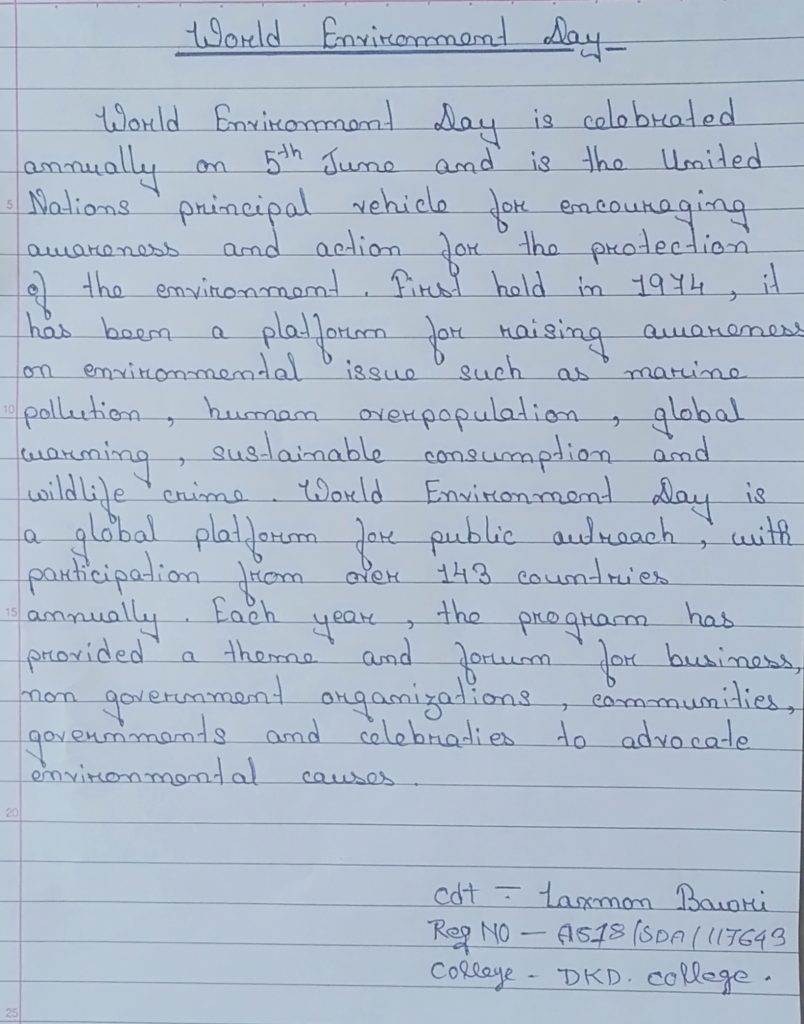 World Environment Day
World Environment Day is celebrated
annually on 5th June and is the United
5
Nations principal vehicle for encouraging
awareness and action for the protection
of the environment. First held in 1974, it
has been a platform for raising awareness
on environmental issue such as marine
10
pollution, human overpopulation, global
warming, sustainable consumption and
wildlife crime. World Environment Day is
a global platform for public outreach, with
participation from over 143 countries
15
annually. Each year, the program has
provided a theme and forum for business,
non government organizations, communities,
governments and celebraties to advocate
environmental causes.
20
Cdt - Laxmon Bawri
Reg NO - AS18/SDA/117643
College - DKD. college.
25